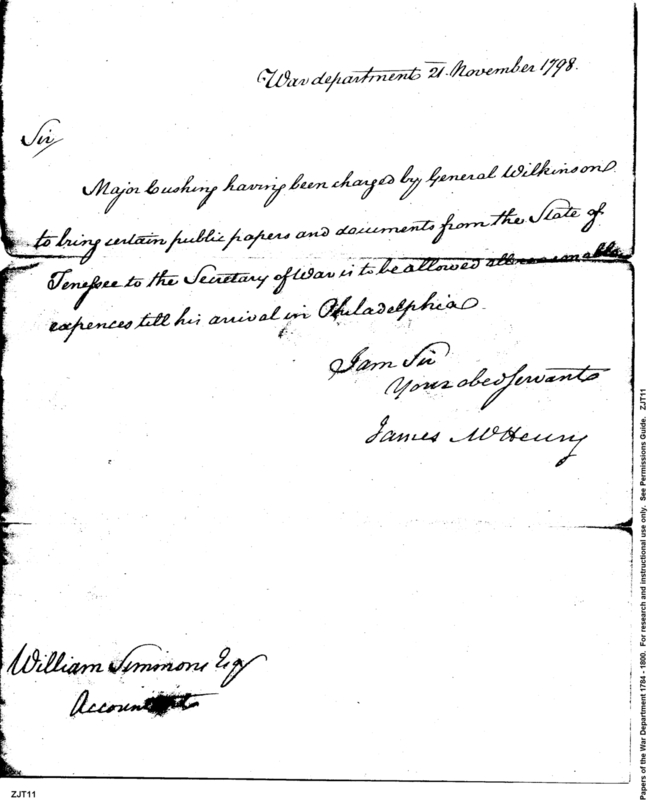 War department 21 November 1798.
Sir
Major Cushing having been charged by General Wilkinson
to bring certain public papers and documents from the State of
Tenessee to the Secretary of War is to be allowed all reasonable
expences till his arrival in Philadelphia
I am Sir
Your obed servant
James McHenry
William Simmons Esq
Accountant
ZJT11
Papers of the War Department 1784 - 1800. For research and instructional use only. See Permissions Guide. ZJT11